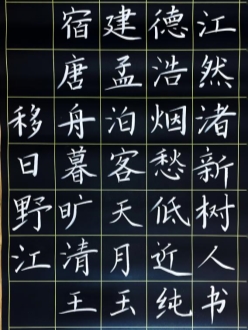 宿建德江
唐孟浩然
移舟泊烟渚
日暮客愁新
野旷天低树
江清月近人
王玉纯书